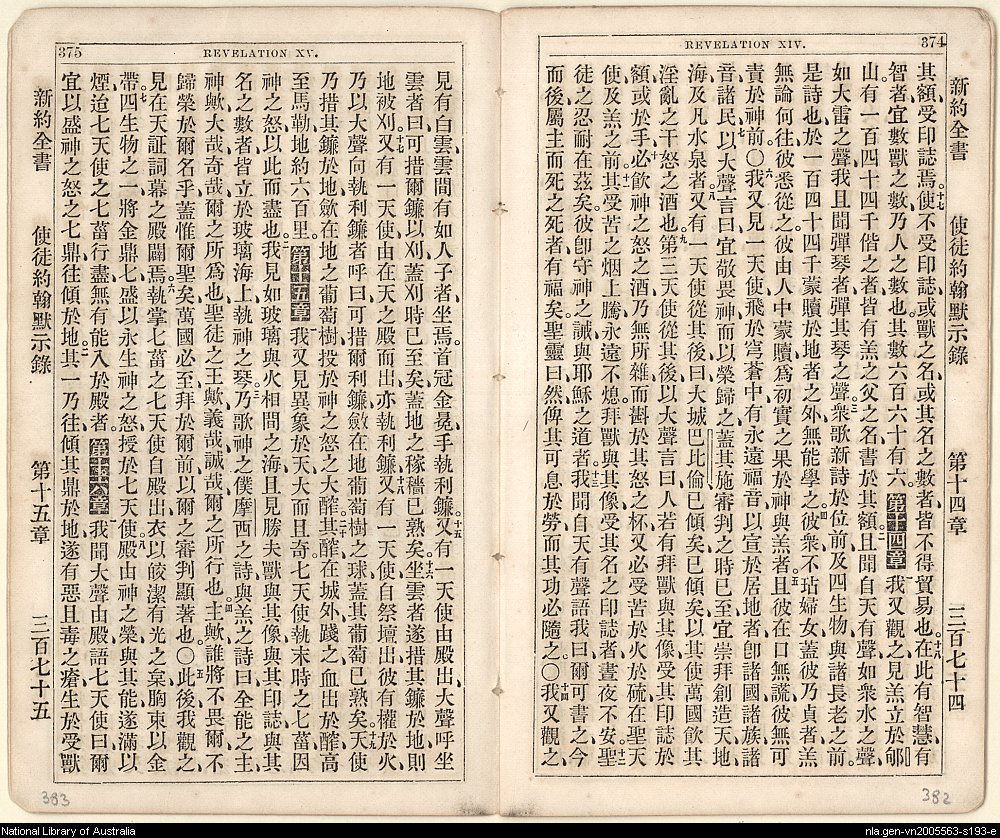 REVELATION XIV. 374
新約全書 使徒約翰默示錄 第十四章 三百七十四
其額受印誌焉、十七使不受印誌或獸之名或其名之數者、皆不得貿易也。十八在此有智慧、有
智者宜數獸之數、乃人之數也、其數六百六十有六。第十四章 一我又觀之、見羔立於郇
山、有一百四十四千偕之者、皆有羔之父之名書於其額。二且聞自天有聲如衆水之聲、
如大雷之聲、我且聞彈琴者彈其琴之聲、三衆歌新詩於位前、及四生物與諸長老之前。
是詩也、於一百四十四千蒙贖於地者之外、無能學之。四彼衆不玷婦女、蓋彼乃貞者、羔
無論何往、彼悉從之。彼由人中蒙贖爲初實之果於神與羔者。五且彼在口無謊、彼無可
責於神前。〇六我又見一天使飛於穹蒼中、有永遠福音、以宣於居地者、卽諸國諸族諸
音諸民。七以大聲言曰、宜敬畏神而以榮歸之、蓋其施審判之時已至、宜崇拜創造天地
海及凡水泉者。八又有一天使從其後曰、大城巴比倫已傾矣、已傾矣、以其使萬國飮其
淫亂之干怒之酒也。九第三天使從其後、以大聲言曰、人若有拜獸與其像、受其印誌於
額、或於手、十必飮神之怒之酒、乃無所雜而斟於其怒之杯、又必受苦於火於硫、在聖天
使及羔之前。十一其受苦之烟上騰、永遠不熄、拜獸與其像、受其名之印誌者、晝夜不安。十二聖
徒之忍耐在茲矣。彼卽守神之誡與耶穌之道者。十三我聞自天有聲語我曰、爾可書之、今
而後屬主而死之死者有福矣。聖靈曰、然、俾其可息於勞、而其功必隨之。〇十四我又觀之、
382
375 REVELATION XV.
見有白雲、雲間有如人子者、坐焉。首冠金冕、手執利鐮。十五又有一天使由殿出、大聲呼坐
雲者曰、可措爾鐮以刈、蓋刈時已至矣、蓋地之稼穡已熟矣。十六坐雲者遂措其鐮於地、則
地被刈。十七又有一天使由在天之殿而出、亦執利鐮。十八又有一天使自祭壇出、彼有權於火、
乃以大聲向執利鐮者呼曰、可措爾利鐮、斂在地葡萄樹之球、蓋其葡萄已熟矣。十九天使
乃措其鐮於地、斂在地之葡萄樹、投於神之怒之大醡。二十其醡在城外踐之、血出於醡、高
至馬勒、地約六百里。第十五章 一我又見異象於天、大而且奇、七天使執末時之七菑、因
神之怒以此而盡也。二我見如玻璃與火相間之海、且見勝夫獸與其像與其印誌與其
名之數者、皆立於玻璃海上、執神之琴。三乃歌神之僕摩西之詩、與羔之詩曰、全能之主
神歟、大哉奇哉、爾之所爲也、聖徒之王歟、義哉誠哉、爾之所行也。四主歟、誰將不畏爾、不
歸榮於爾名乎、蓋惟爾聖矣、萬國必至拜於爾前、以爾之審判顯著也。〇五此後我觀之、
見在天証詞幕之殿闢焉。六執掌七菑之七天使自殿出、衣以皎潔有光之枲、胸束以金
帶。七四生物之一、將金鼎七、盛以永生神之怒、授於七天使。八殿由神之榮與其能、遂滿以
煙、迨七天使之七菑行盡、無有能入於殿者。第十六章 一我聞大聲由殿語七天使曰、爾
宜以盛神之怒之七鼎往傾於地。二其一乃往、傾其鼎於地、遂有惡且毒之瘡生於受獸
新約全書 使徒約翰默示錄 第十五章 三百七十五
383
National Library of Australia
nla.gen-vn2005563-s193-e